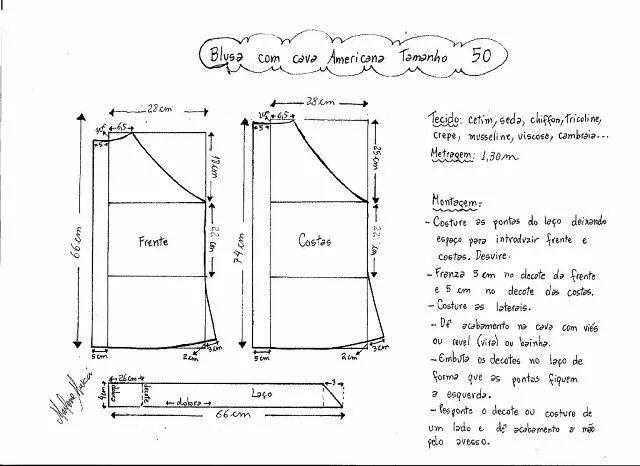 Blusa com cava Americana Tamanho 50
28 cm
6,5
5
66 cm
18 cm
22 cm
Frente
5 cm
2 cm
3 cm
28 cm
6,5
5
74 cm
25 cm
22 cm
Costas
5 cm
2 cm
3 cm
26 cm
3
4 cm
decote
Laço
dobra
66 cm
Tecido: cetim, seda, chiffon, tricoline,
crepe, musseline, viscose, cambraia...
Metragem: 1,30 m
Montagem:
- Costure as pontas do laço deixando
espaço para introduzir frente e
costas. Desvire.
- Franza 5 cm no decote da frente
e 5 cm no decote das costas.
- Costure as laterais.
- Dê acabamento na cava com viés
ou revel (vira) ou bainha.
- Embuta os decotes no laço de
forma que as pontas fiquem
a esquerda.
- Pesponte o decote ou costure de
um lado e dê acabamento a mão
pelo avesso.